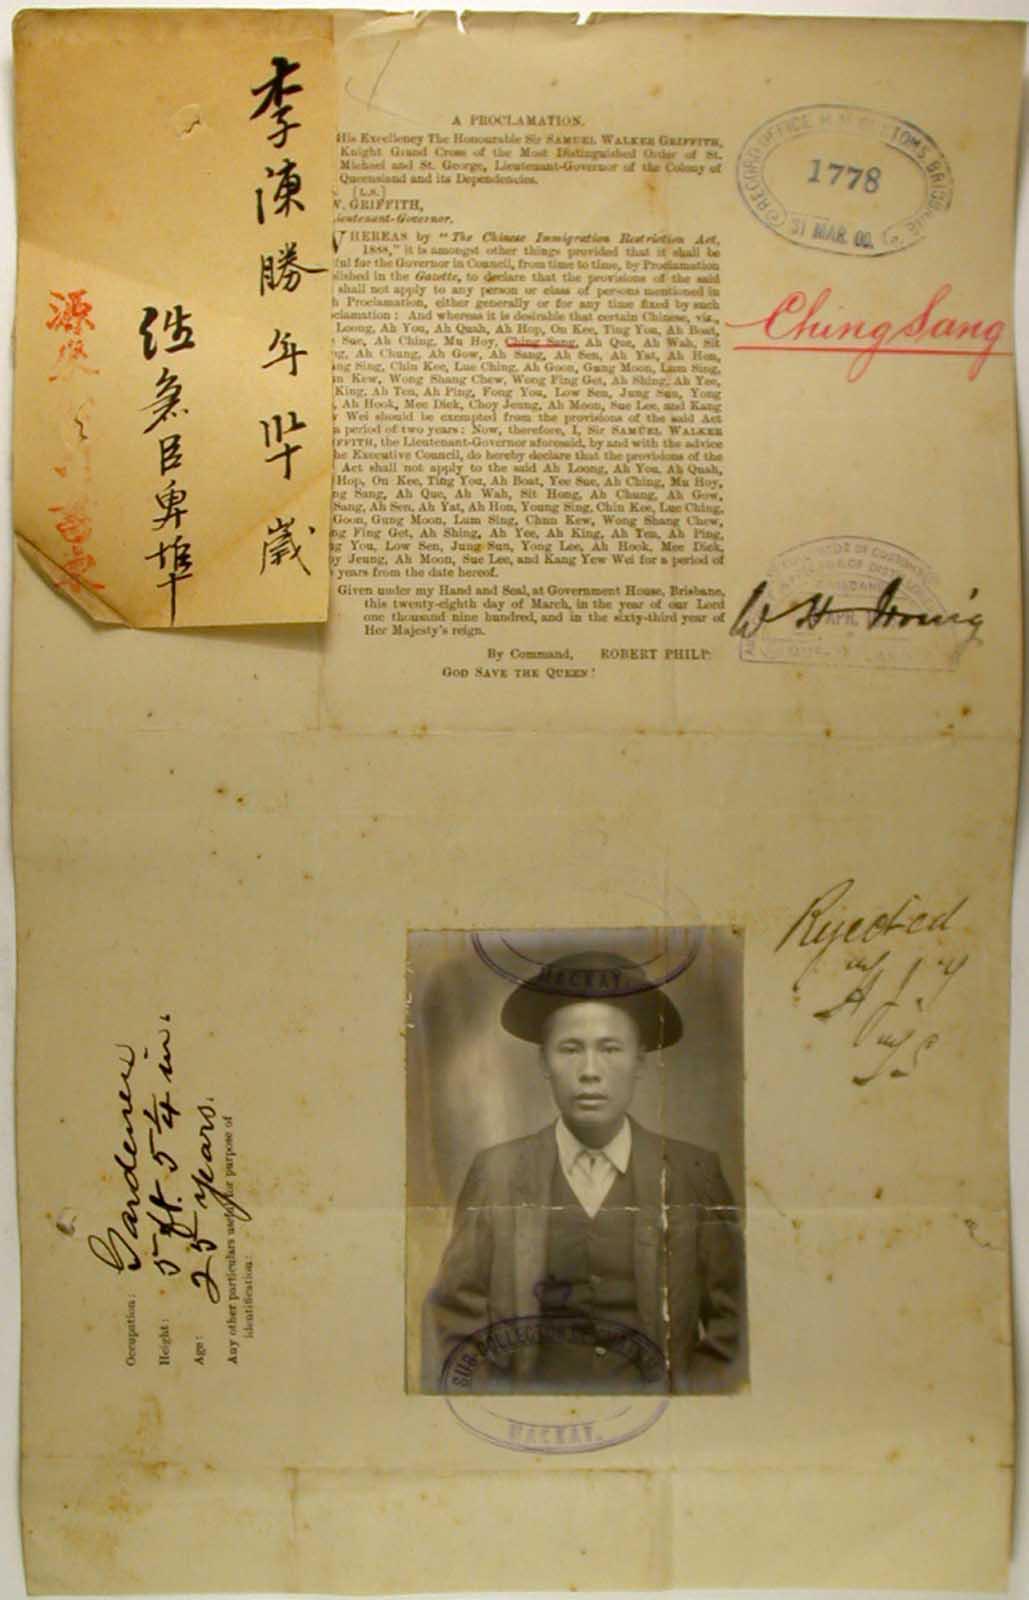 李涷勝年卅歲
A PROCLAMATION.
His Excellency The Honourable Sir SAMUEL WALKER GRIFFITH,
Knight Grand Cross of the Most Distinguished Order of St.
Michael and St. George, Lieutenant-Governor of the Colony of
Queensland and its Dependencies.
[L.S.]
W. GRIFFITH,
Lieutenant-Governor.
WHEREAS by "The Chinese Immigration Restriction Act,
1888," it is amongst other things provided that it shall be
ful for the Governor in Council, from time to time, by Proclamation
lished in the Gazette, to declare that the provisions of the said
shall not apply to any person or class of persons mentioned in
h Proclamation, either generally or for any time fixed by such
clamation: And whereas it is desirable that certain Chinese, viz.,
Loong, Ah You, Ah Quah, Ah Hop, On Kee, Ting You, Ah Boat,
Sue, Ah Ching, Mu Hoy, Ching Sang, Ah Que, Ah Wah, Sit
ng, Ah Chung, Ah Gow, Ah Sang, Ah Sen, Ah Yat, Ah Hon,
ng Sing, Chin Kee, Lue Ching, Ah Goon, Gung Moon, Lum Sing,
n Kew, Wong Shang Chew, Wong Fing Get, Ah Shing, Ah Yee,
King, Ah Ten, Ah Ping, Fong You, Low Sen, Jung Sun, Yong
, Ah Hook, Mee Dick, Choy Jeung, Ah Moon, Sue Lee, and Kang
w Wei should be exempted from the provisions of the said Act
a period of two years: Now, therefore, I, Sir SAMUEL WALKER
FFITH, the Lieutenant-Governor aforesaid, by and with the advice
he Executive Council, do hereby declare that the provisions of the
Act shall not apply to the said Ah Loong, Ah You, Ah Quah,
Hop, On Kee, Ting You, Ah Boat, Yee Sue, Ah Ching, Mu Hoy,
ng Sang, Ah Que, Ah Wah, Sit Hong, Ah Chung, Ah Gow,
Sang, Ah Sen, Ah Yat, Ah Hon, Young Sing, Chin Kee, Lue Ching,
Goon, Gung Moon, Lum Sing, Chun Kew, Wong Shang Chew,
ng Fing Get, Ah Shing, Ah Yee, Ah King, Ah Ten, Ah Ping,
g You, Low Sen, Jung Sun, Yong Lee, Ah Hook, Mee Dick,
y Jeung, Ah Moon, Sue Lee, and Kang Yew Wei for a period of
years from the date hereof.
Given under my Hand and Seal, at Government House, Brisbane,
this twenty-eighth day of March, in the year of our Lord
one thousand nine hundred, and in the sixty-third year of
Her Majesty's reign.
By Command, ROBERT PHILP.
GOD SAVE THE QUEEN!
RECORD OFFICE H.M. CUSTOMS, BRISBANE
1778
31 MAR. 00
Ching Sang
W H Irving
Rejected
Occupation: Gardener
Height: 5 ft. 5 1/4 in.
Age: 25 years.
Any other particulars useful for purpose of
identification:
MACKAY.
SUB-COLLECTOR OF CUSTOMS
MACKAY.